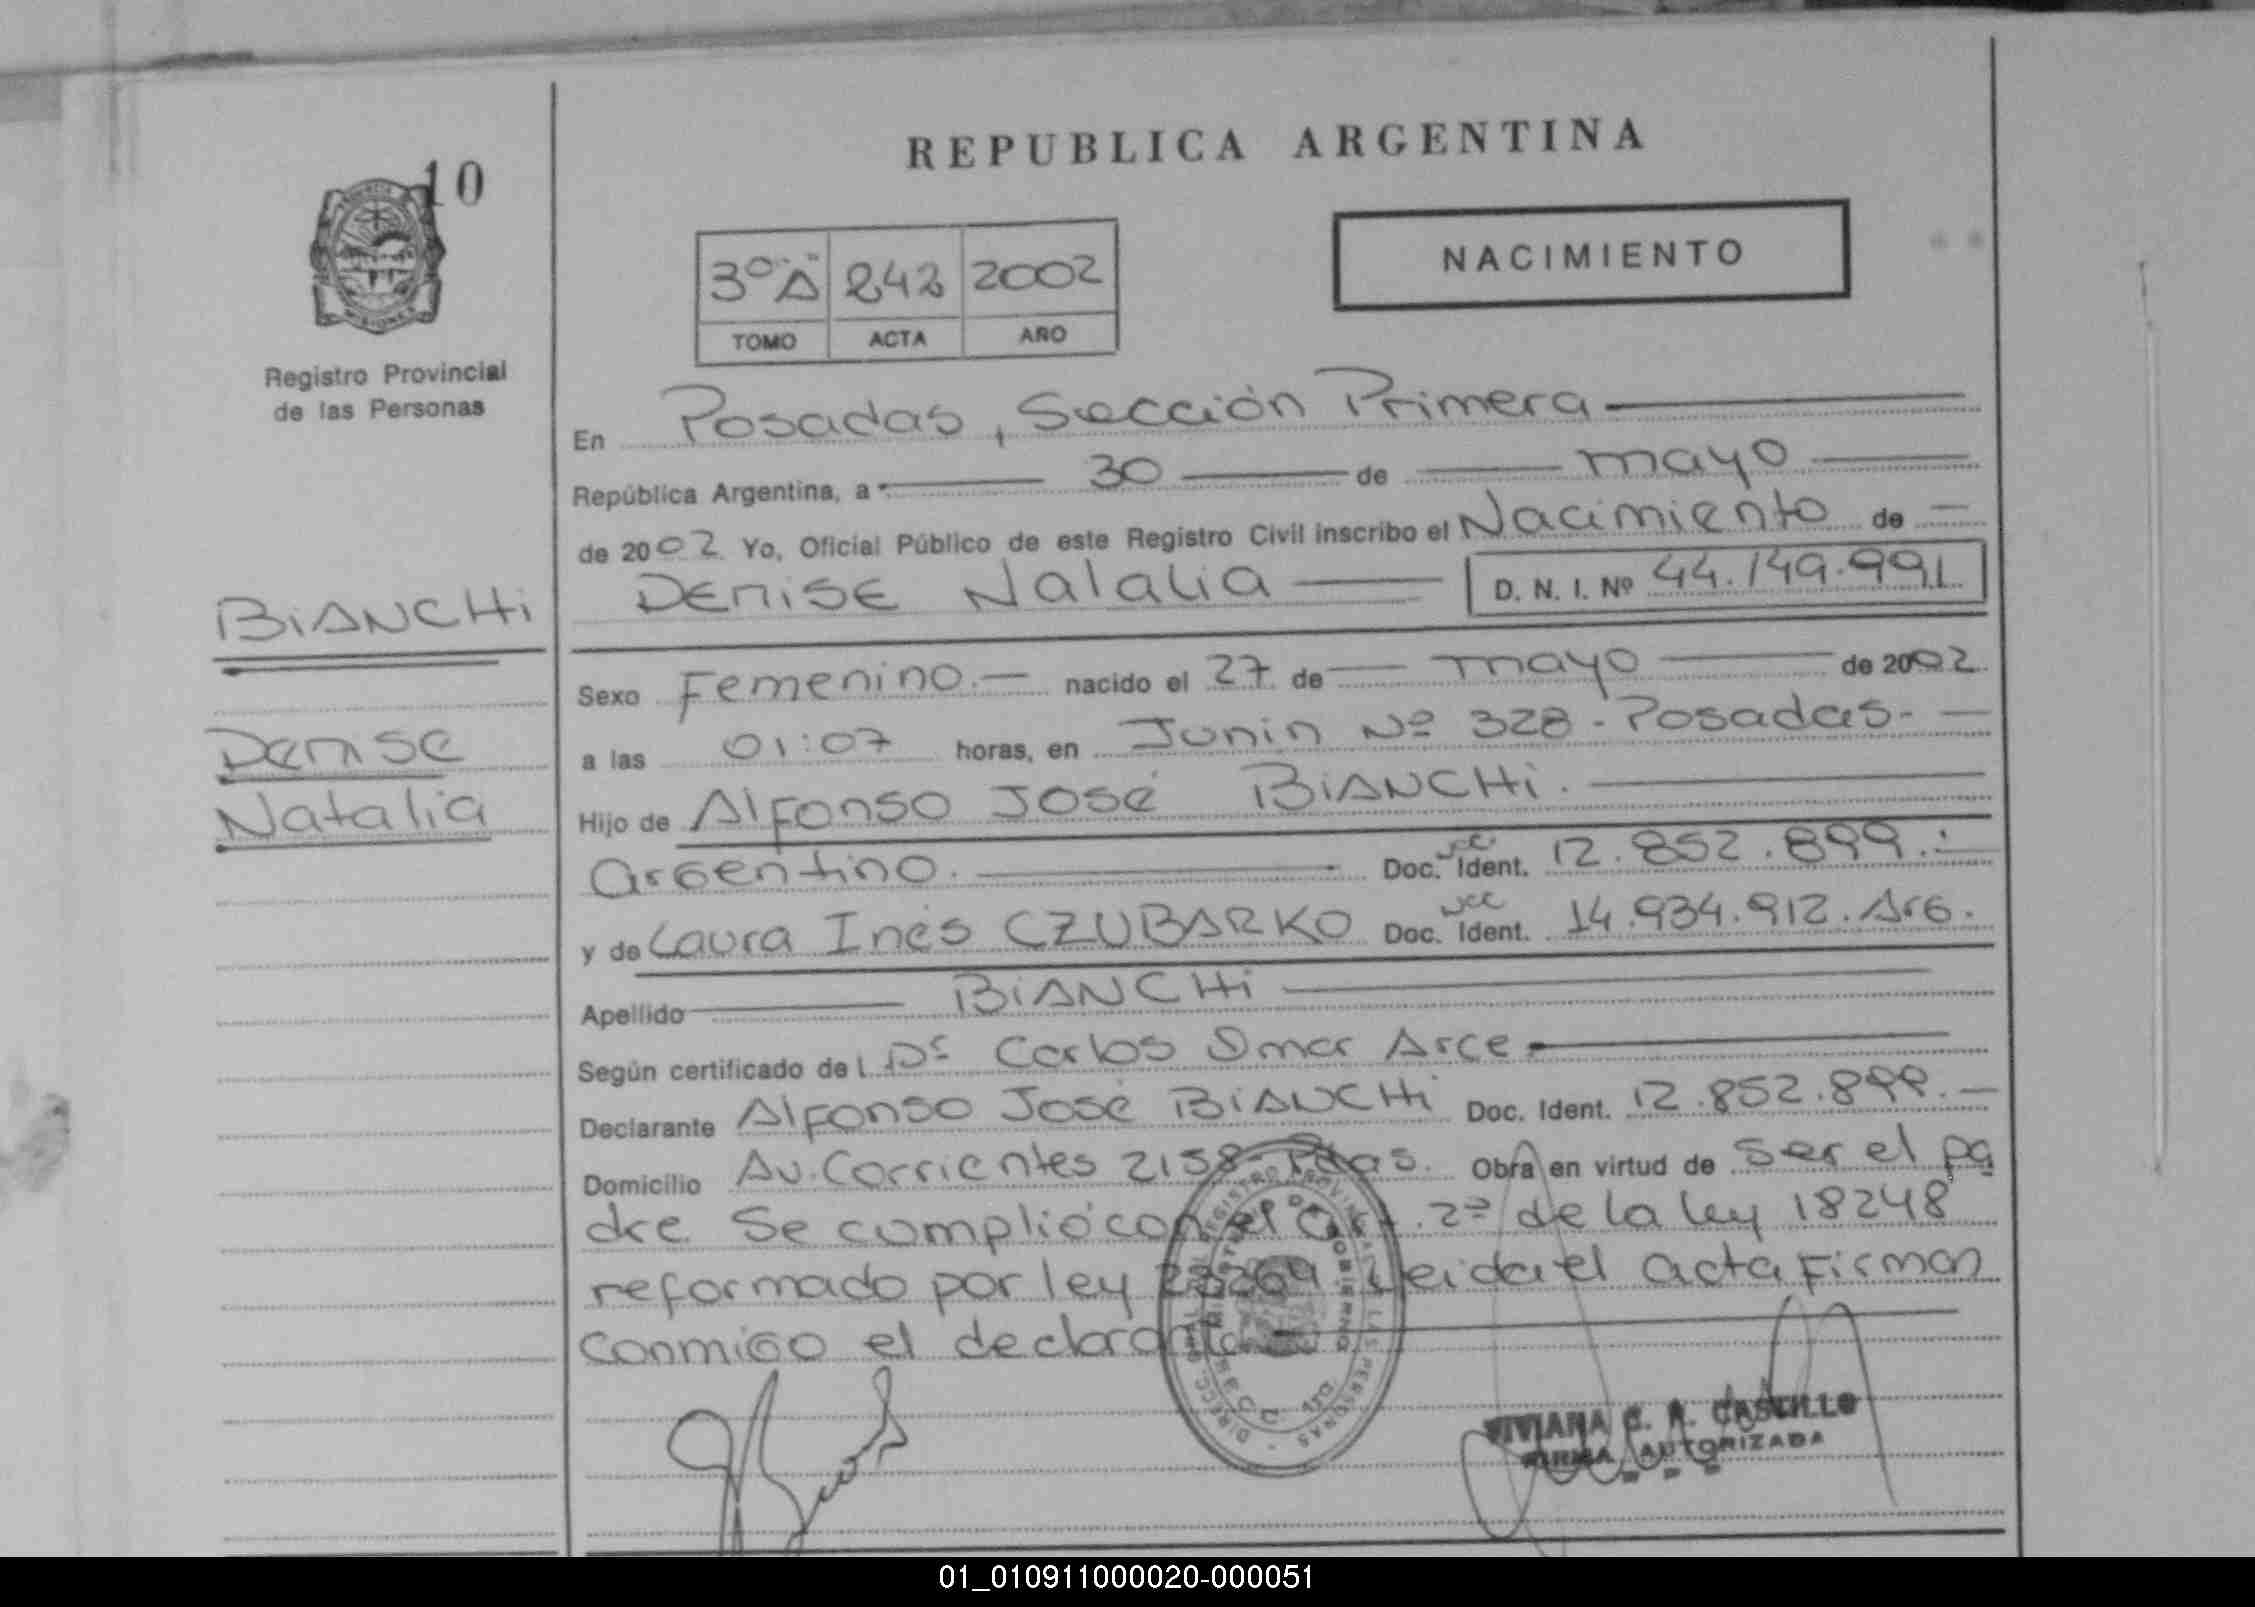 10
REPUBLICA ARGENTINA
NACIMIENTO
3º "A" 242 2002
TOMO ACTA AÑO
MISIONES
Registro Provincial
de las Personas
En Posadas, Sección Primera
República Argentina, a 30 de mayo
de 2002 Yo, Oficial Público de este Registro Civil inscribo el Nacimiento de
DENISE Natalia D. N. I. Nº 44.149.991
BIANCHI
Denise
Natalia
Sexo Femenino.- nacido el 27 de mayo de 2002.
a las 01:07 horas, en Junin Nº 328 - Posadas.-
Hijo de Alfonso José BIANCHI.
argentino. Doc. Ident. 12.852.899.-
y de Laura Inés CZUBARKO Doc. Ident. 14.934.912. Arg.
Apellido BIANCHI
Según certificado del Dr Carlos Omar Arce
Declarante Alfonso José BIANCHI Doc. Ident. 12.852.899.-
Domicilio Av. Corrientes 2158- Pdas. Obra en virtud de ser el pa
dre. Se cumplió con el art. 2º de la ley 18248
reformado por ley 23264 Leida el acta Firman
conmigo el declarante
VIVIANA C. A. CASTILLO
FIRMA AUTORIZADA
01_010911000020-000051